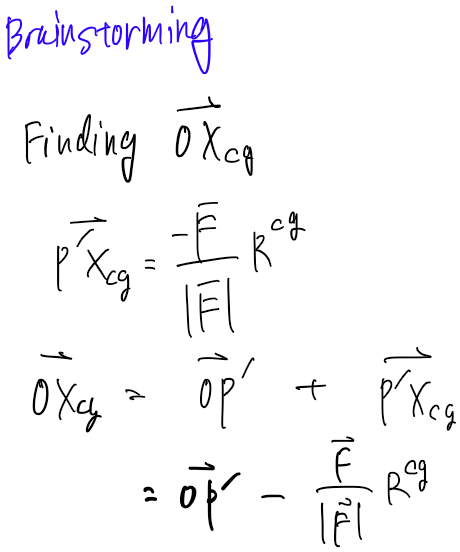 Brainstorming
Finding \vec{OX_{cg}}
\vec{P'X_{cg}} = \frac{-\vec{F}}{|\vec{F}|} R^{cg}
\vec{OX_{cg}} = \vec{OP'} + \vec{P'X_{cg}}
= \vec{OP'} - \frac{\vec{F}}{|\vec{F}|} R^{cg}